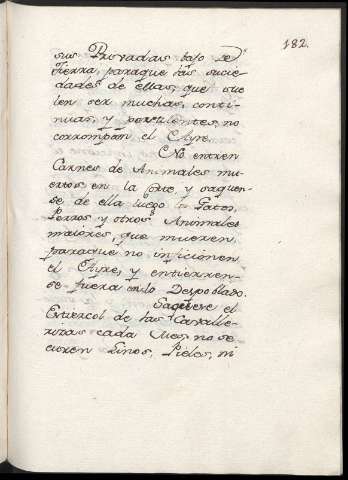 182.
sus Privadas bajo de
tierra, paraque las sucie-
dades de ellas, que sue
len ser muchas, conti-
nuas, y pestilentes, no
corrompan el Ayre.
No entren
Carnes de Animales mu-
ertos, en la Corte, y saquen-
se de ella luego los Gatos,
Perros y otros Animales
maiores, que mueren,
paraque no inficionen
el Ayre, y entierren-
se fuera en lo Despoblado.
Saquese el
Estiercol de las Cavalle-
rizas cada Mes, no se
curen Linos, Pieles, ni